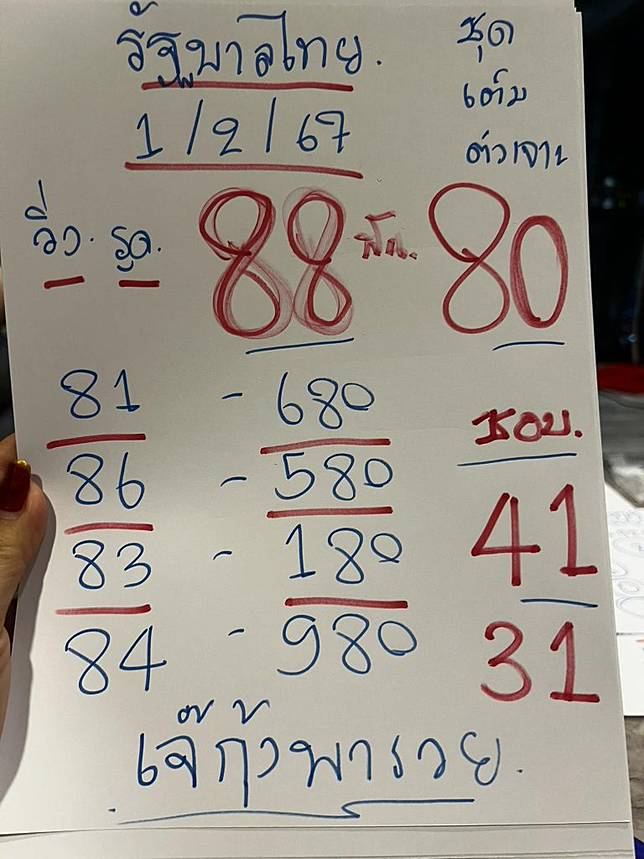 รัฐบาลไทย.
1/2/67
ชุด
เต็ม
ตัวเจาะ
วิ่ง. รูด. 88 80
81 - 680
86 - 580
83 - 180
84 - 980
ชอบ.
41
31
เจ๊กุ้งพารวย.